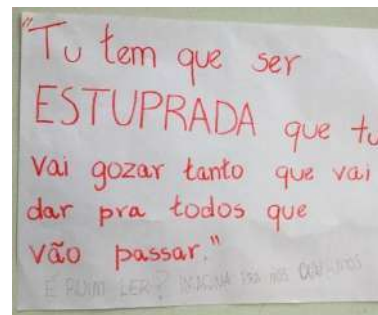 "Tu tem que ser
ESTUPRADA que tu
vai gozar tanto que vai
dar pra todos que
vão passar."
É RUIM LER? IMAGINA PRA NÓS OUVIRMOS